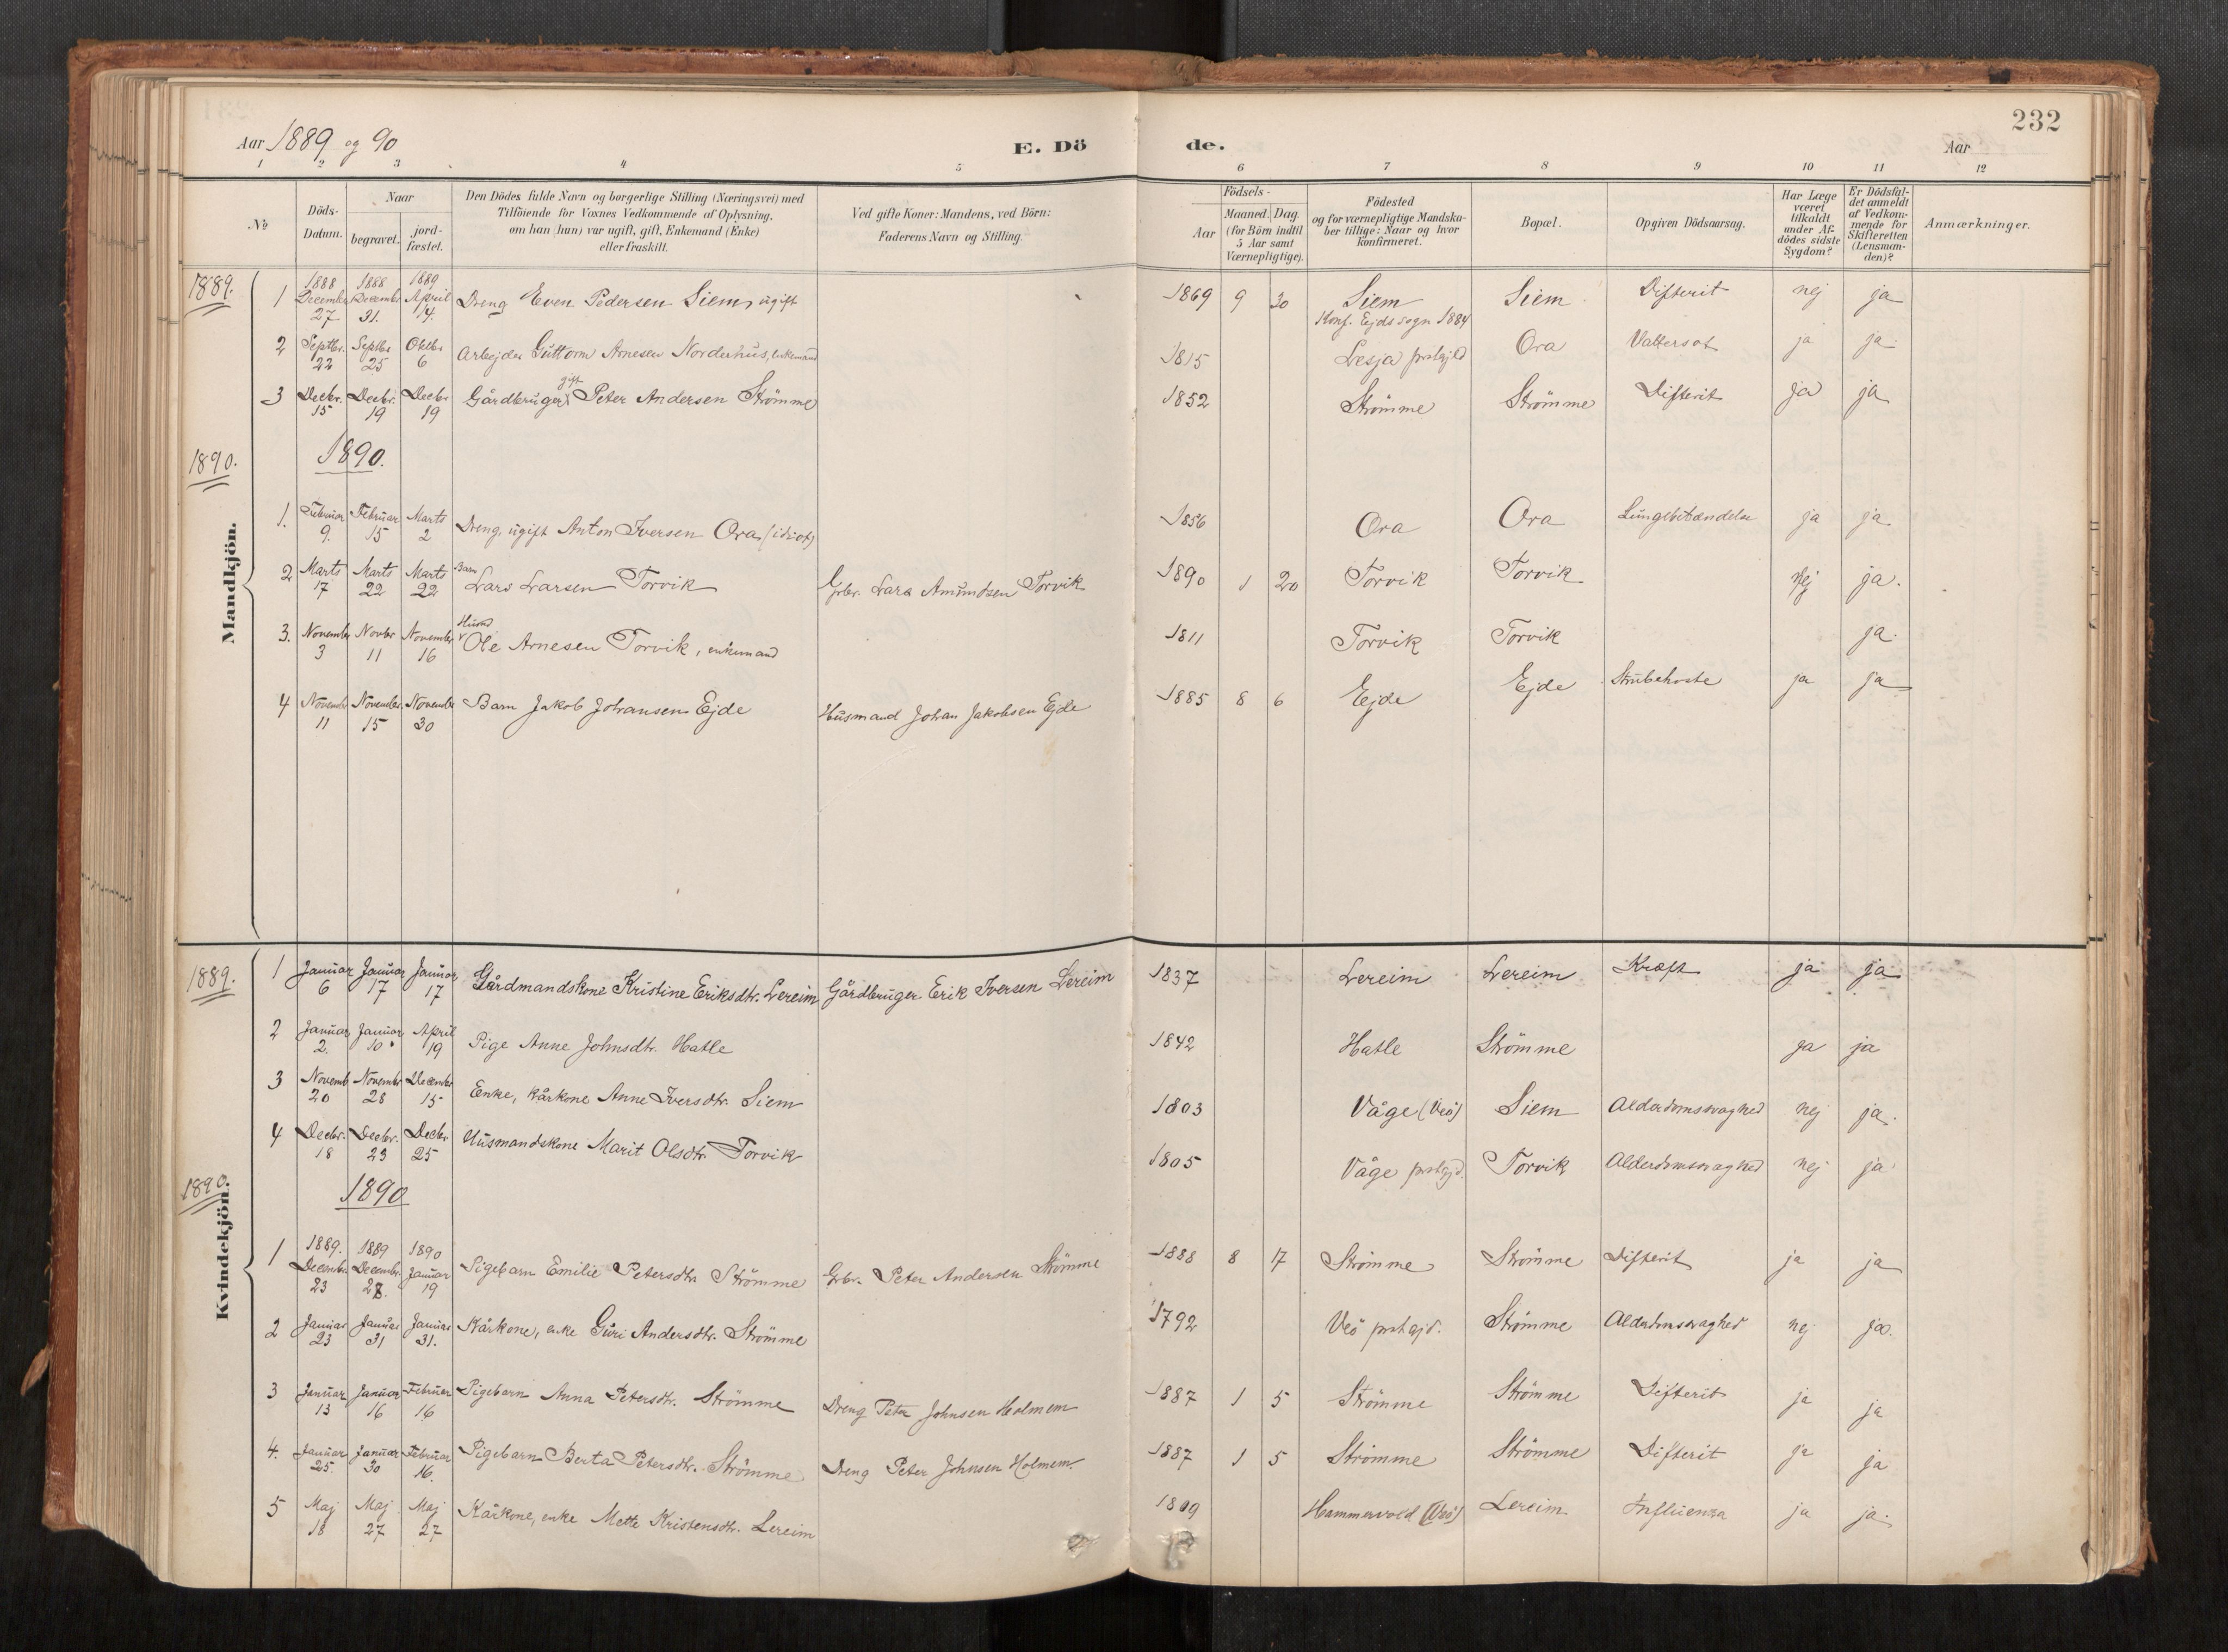 232
Aar 1889 og 90 E. Dö de. Aar
1 2 3 4 5 6 7 8 9 10 11 12
No
Döds-Datum.
Naar
begravet.
jord-fæstet.
Den Dödes fulde Navn og borgerlige Stilling (Næringsvei) med
Tilföiende for Voxnes Vedkommende af Oplysning,
om han (hun) var ugift, gift, Enkemand (Enke)
eller fraskilt.
Ved gifte Koner: Mandens, ved Börn:
Faderens Navn og Stilling.
Födsels-
Aar
Maaned. Dag.
(for Börn indtil
5 Aar samt
Værnepligtige).
Födested
og for værnepligtige Mandska-
ber tillige: Naar og hvor
konfirmeret.
Bopæl.
Opgiven Dödsaarsag.
Har Læge
været
tilkaldt
under Af-
dödes sidste
Sygdom?
Er Dödsfal-
det anmeldt
af Vedkom-
mende for
Skifteretten
(Lensman-
den)?
Anmærkninger.
Mandkjön.
1889.
1 1888 December 27 1888 December 31. 1889 April 14. Dreng Even Pedersen Siem, ugift 1869 9 30 Siem Konf. Ejds sogn 1884 Siem Difterit nej ja
2 Septbr. 22 Septbr 25 Oktbr 6 Arbejder Guttorm Arnesen Norderhus, enkemand 1815 Lesja prstgjld Ora Vattersot ja ja
3 Decbr. 15 Decbr. 19 Decbr 19 Gårdbruger, gift Peter Andersen Strömme 1852 Strömme Strömme Difterit ja ja
1890. 1890.
1. Februar 9. Februar 15 Marts 2 Dreng, ugift Anton Iversen Ora (idiot) 1856 Ora Ora Lungebetændelse ja ja
2 Marts 17 Marts 22 Marts 22 Barn Lars Larsen Torvik Grbr. Lars Amundsen Torvik 1890 1 20 Torvik Torvik nej ja.
3. November 3 Novbr 11 November 16 Husmd Ole Arnesen Torvik, enkemand 1811 Torvik Torvik ja.
4 Novembr 11 November 15 November 30 Barn Jakob Johansen Ejde Husmand Johan Jakobsen Ejde 1885 8 6 Ejde Ejde Strubehoste ja ja
Kvindekjön.
1889.
1 Januar 6 Januar 17 Januar 17 Gårdmandskone Kristine Eriksdtr. Lereim Gårdbruger Erik Iversen Lereim 1837 Lereim Lereim Kræft ja ja
2 Januar 2. Januar 10 April 19 Pige Anne Johnsdtr. Hatle 1842 Hatle Strömme ja ja
3 Novemb 20 Novembr 28 December 15 Enke, kårkone Anne Iversdtr. Siem 1803 Våge (Veö) Siem Alderdomssvaghed nej ja.
4 Decbr. 18 Decbr. 23 Decbr. 25 Husmandskone Marit Olsdtr. Torvik 1805 Våge prstgjd. Torvik Alderdomssvaghed nej ja
1890. 1890
1 1889. Decembr. 23 1889 Decembr. 28. 1890 Januar 19 Pigebarn Emilie Petersdtr Strömme Grbr. Peter Andersen Strömme 1888 8 17 Strömme Strömme Difterit ja ja
2 Januar 23 Januar 31 Januar 31. Kårkone, enke Guri Andersdtr. Strömme 1792 Veö prstgjd. Strömme Alderdomssvaghed nej ja.
3 Januar 13 Januar 16 Februar 16 Pigebarn Anna Petersdtr. Strömme Dreng Peter Johnsen Holmem 1887 1 5 Strömme Strömme Difterit ja ja
4. Januar 25. Januar 30 Februar 16. Pigebarn Berta Petersdtr. Strömme Dreng Peter Johnsen Holmem. 1887 1 5 Strömme Strömme Difterit ja ja
5 Maj 18 Maj 27 Maj 27 Kårkone, enke Mette Kristensdtr. Lereim 1809 Hammervold (Veö) Lereim Influenza ja ja.